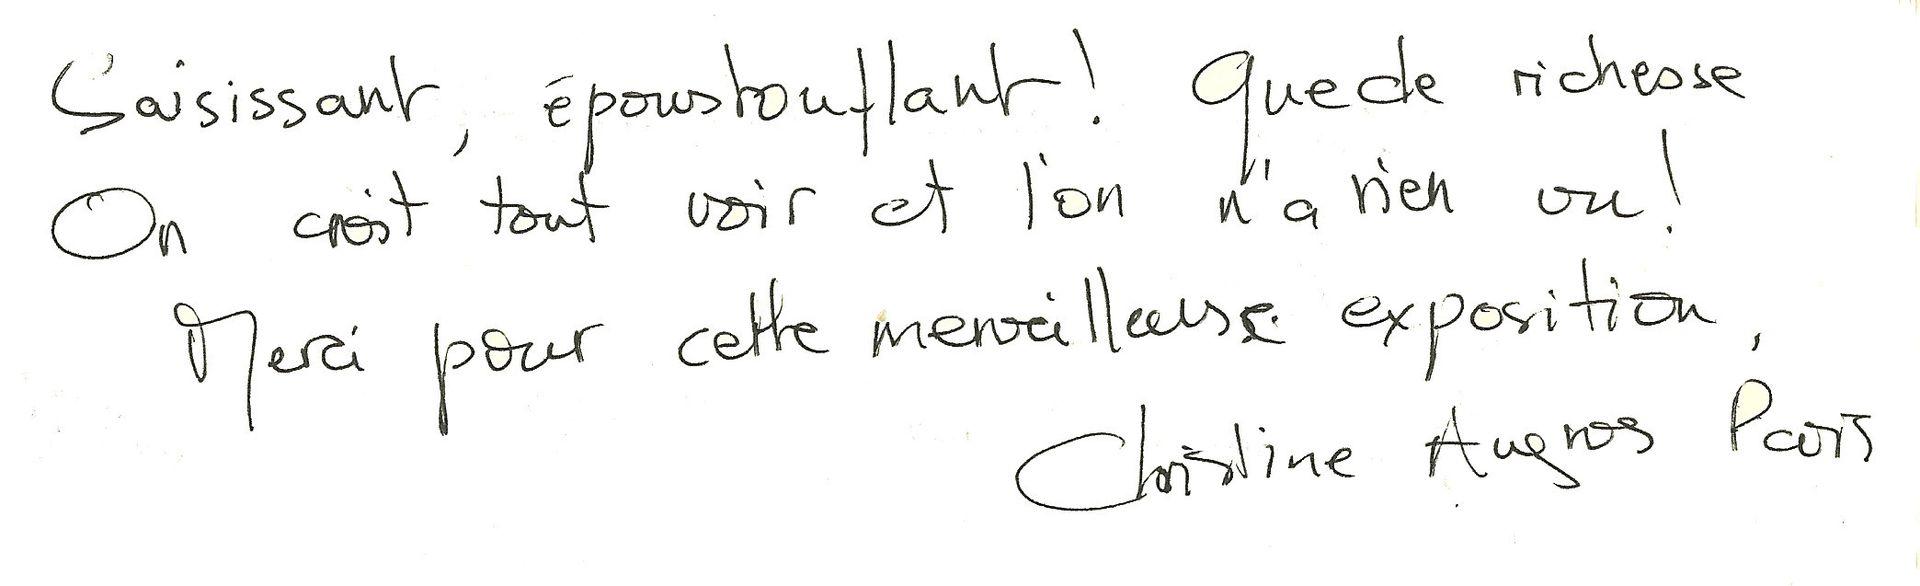 Saisissant, époustouflant! Que de richesse
On croit tout voir et l'on n'a rien vu!
Merci pour cette merveilleuse exposition,
Christine Augros Paris